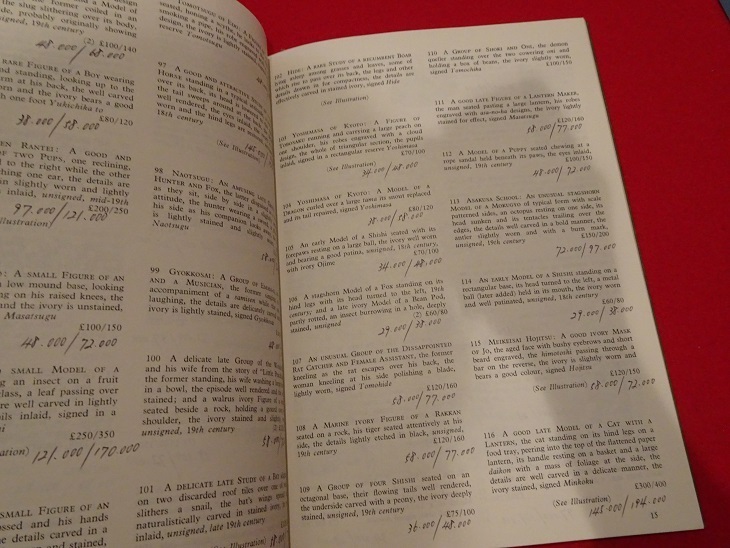 the slug slithering over its body,
probably originally showing
unsigned, 19th century
(2) £100/140
48.000/68.000
RARE FIGURE OF A BOY wearing
and standing, looking up to the
at his back, the well carved
and the ivory bears a good
with one foot Yukichika to
£80/120
38.000/58.000
RANTEI: A GOOD AND
OF TWO PUPS, one reclining,
to the right while the other
ching one ear, the details are
in slightly worn and lightly
inlaid, unsigned, mid-19th
£200/250
97.000/121.000
Illustration)
A SMALL FIGURE OF AN
low mound base, looking
ng on his raised knees, the
and the ivory is unstained,
Masatsugu
£100/150
48.000/72.000
SMALL MODEL OF A
ing an insect on a fruit
a leaf passing over
are well carved in lightly
inlaid, signed in a
£250/350
121.000/170.000
SMALL FIGURE OF AN
and his hands
details carved in a
and stained,
smoking a pipe, his
design, the ivory is lightly
reserve Tomotsugu
97 A GOOD AND ATTRACTIVE
HORSE standing in a typical
over its back, its head
the tail sweeps around
well rendered, the eyes
worn and the hind legs are
18th century
(See Illustration)
98 NAOTSUGU: AN AMUSING
HUNTER AND FOX, the latter
as they sit, side by side is a
attitude, the hunter wearing a
his side as his companion looks
is lightly stained and slightly
Naotsugu
99 GYOKKOSAI: A GROUP OF
AND A MUSICIAN, the former
accompaniment of a samisen
laughing, the details are delicately
ivory is lightly stained, signed
100 A delicate late Group of the
and his wife from the story of
the former standing, his wife washing
in a bowl, the episode well rendered
stained; and a walrus ivory Figure of
seated beside a rock, holding a
shoulder, the ivory stained and
unsigned, 19th century
101 A DELICATE LATE STUDY OF A BAT
on two discarded roof tiles over
slithers a snail, the bat's wings
naturalistically carved in stained
inlaid, unsigned, late 19th century
(See Illustration)
102 HIDE: A RARE STUDY OF A RECUMBENT BOAR
lying asleep among grasses and leaves, some of
which rise to pass over its back, the legs and other
details drawn in for compactness, the details are
effectively carved in stained ivory, signed Hide
(See Illustration)
103 YOSHIMASA OF KYOTO: A FIGURE OF
TOBOSAKU running and carrying a large peach on
one shoulder, his robes engraved with a cloud
design, the whole of triangular section, the pupils
inlaid, signed in a rectangular reserve Yoshimasa
£70/100
(See Illustration)
34.000/48.000
104 YOSHIMASA OF KYOTO: A MODEL OF A
DRAGON curled over a large tama its snout replaced
and its tail repaired, signed Yoshimasa
£80/120
38.000/58.000
105 An early Model of a Shishi seated with its
forepaws resting on a large ball, the ivory well worn
and bearing a good patina, unsigned, 18th century,
with ivory Ojime
£70/100
34.000/48.000
106 A staghorn Model of a Fox standing on its
hind legs with its head turned to the left, 19th
century; and a late ivory Model of a Bean Pod,
partly opened, an insect burrowing in a hole, deeply
stained, unsigned
(2) £60/80
29.000/38.000
107 AN UNUSUAL GROUP OF THE DISSAPPOINTED
RAT CATCHER AND FEMALE ASSISTANT, the former
kneeling as the rat escapes over his back, the
woman kneeling at his side polishing a blade,
lightly worn, signed Tomohide
£120/160
58.000/77.000
108 A MARINE IVORY FIGURE OF A RAKKAN
seated on a rock, his tiger seated attentively at his
side, the details lightly etched in black, unsigned,
19th century
£120/160
58.000/77.000
109 A GROUP OF FOUR SHISHI SEATED on an
octagonal base, their flowing tails well rendered,
the underside carved with a peony, the ivory deeply
stained, unsigned, 19th century
£75/100
36.000/48.000
110 A GROUP OF SHOKI AND ONI, the demon
queller standing over the two cowering oni and
holding a box of beans, the ivory slightly worn,
signed Tomochika
£100/150
111 A GOOD LATE FIGURE OF A LANTERN MAKER,
the man seated pasting a large lantern, his robes
engraved with asa-no-ha designs, the ivory lightly
stained for effect, signed Masatsugu
£120/160
58.000/77.000
112 A MODEL OF A PUPPY seated chewing at a
rope sandal held beneath its paws, the eyes inlaid,
unsigned, 19th century
£100/150
48.000/72.000
113 ASAKUSA SCHOOL: AN UNUSUAL STAGHORN
MODEL OF A MOKUGYO of typical form with scale
patterned sides, an octopus resting on one side, its
head sunken and its tentacles trailing over the
edges, the details well carved in a bold manner, the
antler slightly worn and with a burn mark,
unsigned, 19th century
£150/200
72.000/97.000
114 AN EARLY MODEL OF A SHISHI standing on a
rectangular base, its head turned to the left, a metal
ball (later added) held in its mouth, the ivory worn
and well patinated, unsigned, 18th century
£60/80
29.000/38.000
115 MEIKEISAI HOJITSU: A GOOD IVORY MASK
OF JO, the aged face with bushy eyebrows and short
beard engraved, the himotoshi passing through a
bar on the reverse, the ivory is slightly worn and
bears a good colour, signed Hojitsu
£120/150
(See Illustration)
58.000/72.000
116 A GOOD LATE MODEL OF A CAT WITH A
LANTERN, the cat standing on its hind legs on a
food tray, peering into the top of the flattened paper
lantern, its handle resting on a basket and a large
daikon with a mass of foliage at the side, the
details are well carved in a delicate manner, the
ivory stained, signed Minkoku
£300/400
(See Illustration)
145.000/194.000
15